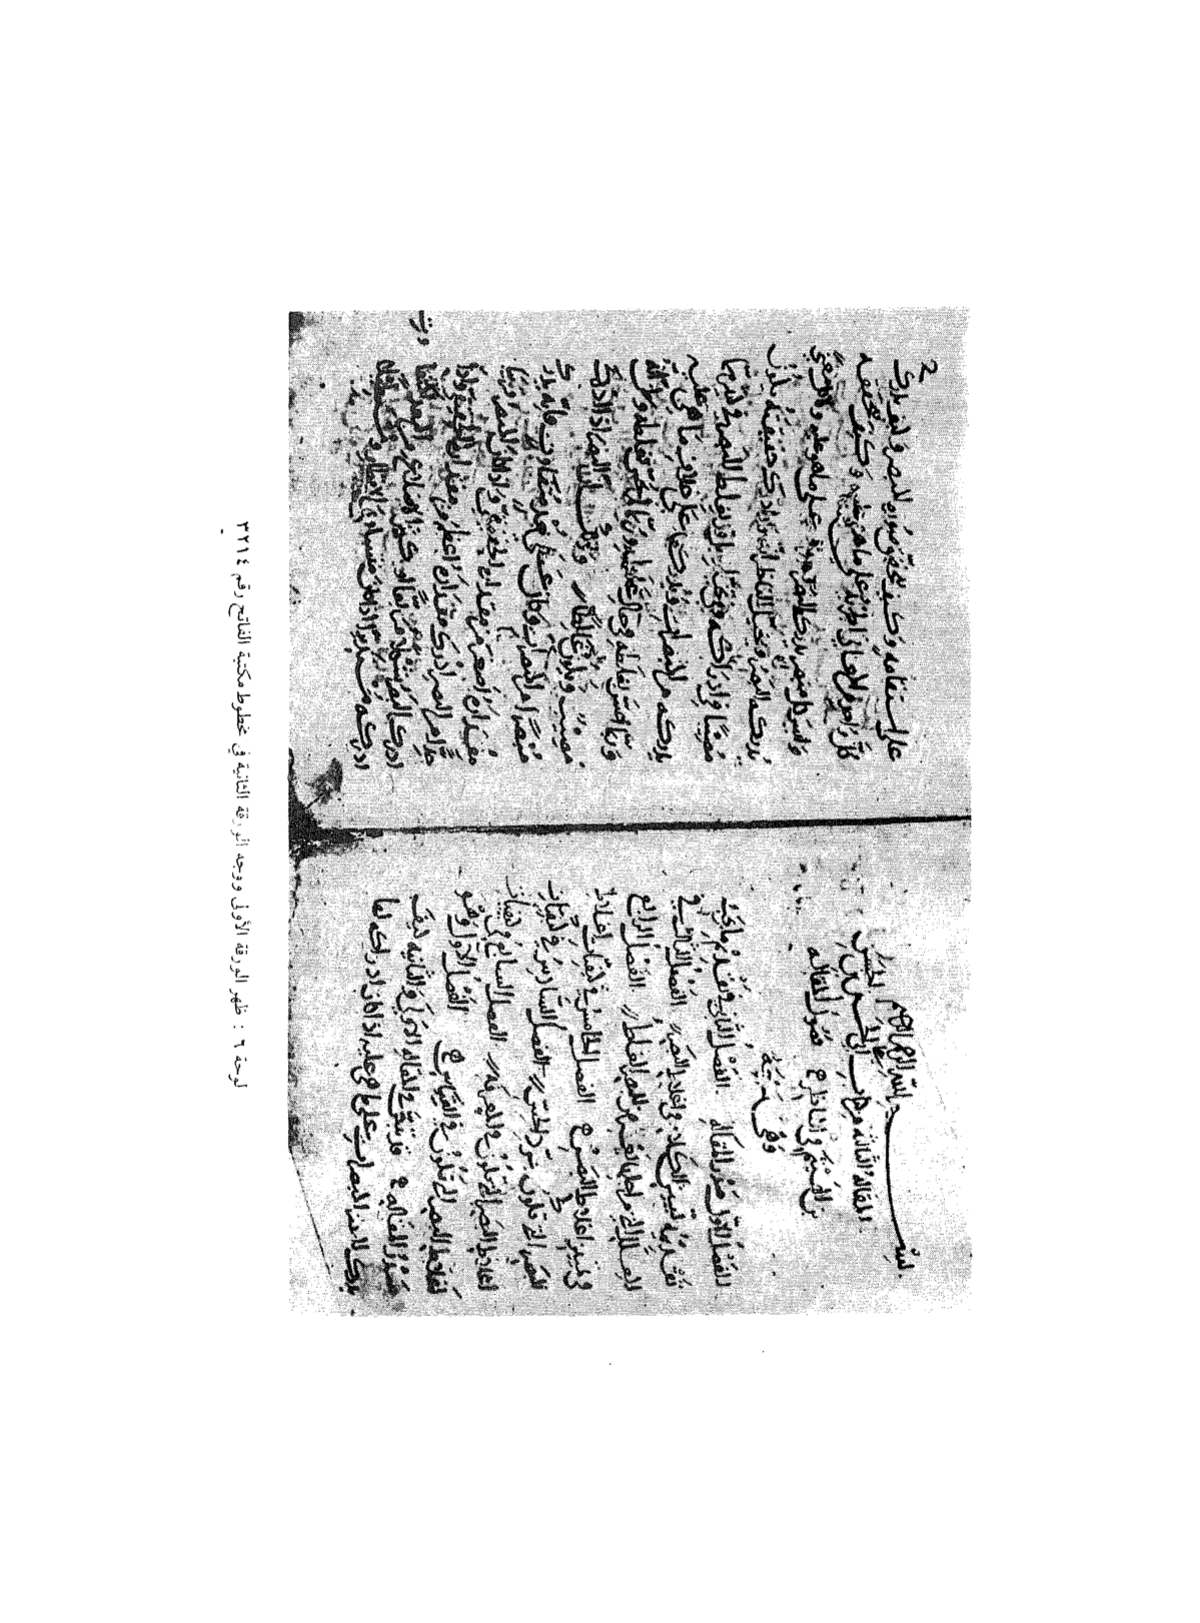 بسم الله الرحمن الرحيم
المقالة الثالثة من كتاب أبي علي الحسن بن الحسن
بن الهيثم في المناظر فصول المقالة
وهي سبعة
الفصل الأول صدر المقالة الفصل الثاني في تقديم ما يجب
تقديمه لتبيين الكلام في أغلاط البصر الفصل الثالث في
العلل التي من أجلها يعرض للبصر الغلط الفصل الرابع
في تمييز أغلاط البصر الفصل الخامس في كيفيات أغلاط
البصر التي تكون بمجرد الحس الفصل السادس في كيفيات
أغلاط البصر التي تكون في المعرفة الفصل السابع في كيفيات
أغلاط البصر التي تكون في القياس الفصل الأول وهو
صدر المقالة قد تبين في المقالة الأولى والثانية كيف
يدرك البصر المبصرات على ما هي عليه إذا كان إدراكه لها
2
على استقامة وكيف يتحقق صورة المبصر وكيف يدرك
كل واحد من المعاني الجزئية على ما هي عليه وكيف يتحققه
وليس كل مبصر يدركه البصر على ما هو عليه ولا كل معنى
يدركه البصر ويتخيل الناظر أنه قد أدرك حقيقته يكون
مصيبا في إدراكه وفي تخيله بل قد يغلط البصر في كثير مما
يدركه من المبصرات ويدركها على خلاف ما هي عليه
وربما أحس بغلطه في حال غلطه وربما لم يحس بغلطه وظن أنه
مصيب ويكون غالطا وذلك أن البصر إذا أدرك
مبصرا من المبصرات وكان على بعد متفاوت فإنه يدرك
مقداره أصغر من مقداره الحقيقي وإذا كان المبصر قريبا
جدا من البصر أدرك مقداره أعظم من مقداره الحقيقي وإذا
لوحة ٦ : ظهر الورقة الأولى ووجه الورقة الثانية في مخطوط مكتبة الفاتح رقم ٣٢١٤